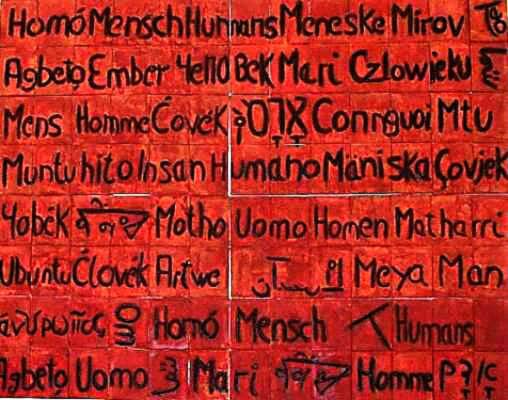 Homó Mensch Humans Meneske Mirov
Agbeto Ember Yeπo Bek Mari Czlowieku
Mens Homme Čovék אָדָם Connguoi Mtu
Muntu hito Insan Humano Mäniska Čovjek
Чobék Motho Uomo Homen Matharri
Ubuntu Človék Artwe انسان Meya Man
άνθρωπος Homó Mensch 人 Humans
Agbeto Uomo Mari Homme